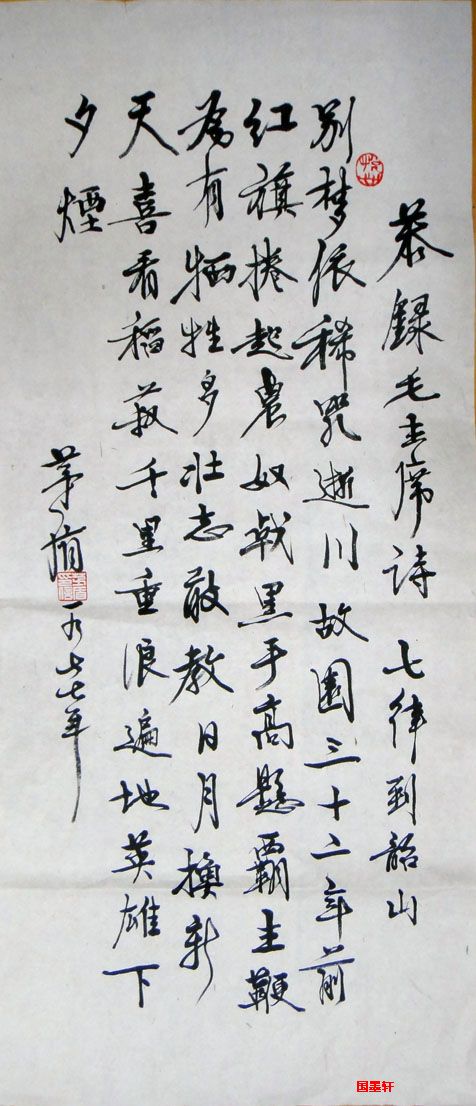 恭録毛主席诗 七律到韶山
别梦依稀咒逝川故園三十二年前
红旗捲起農奴戟黑手高懸霸主鞭
為有牺牲多壮志敢教日月換新
天喜看稻菽千里重浪遍地英雄下
夕煙
茅盾
一九七七年
国墨轩